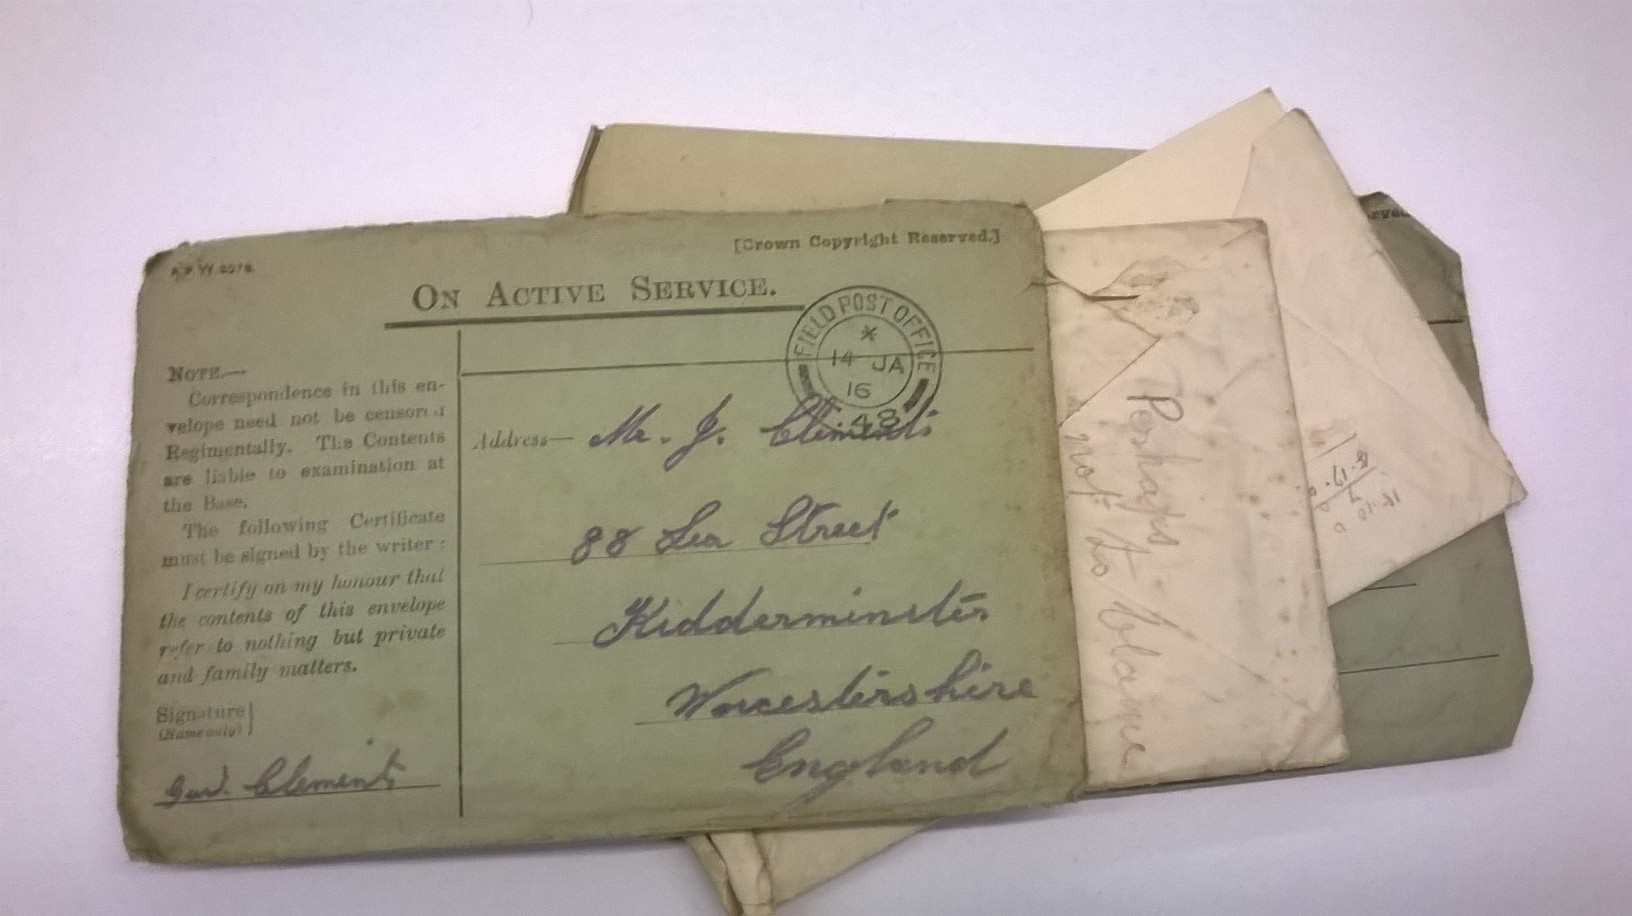 [Crown Copyright Reserved.]
ON ACTIVE SERVICE.
FIELD POST OFFICE
*
14 JA
16
48
NOTE.—
Correspondence in this en-
velope need not be censored
Regimentally. The Contents
are liable to examination at
the Base.
The following Certificate
must be signed by the writer:
I certify on my honour that
the contents of this envelope
refer to nothing but private
and family matters.
Signature
(Name only)
Clements
Address— Mr. J. Clements
88 Lea Street
Kidderminster
Worcestershire
England
Perhaps
not to blame